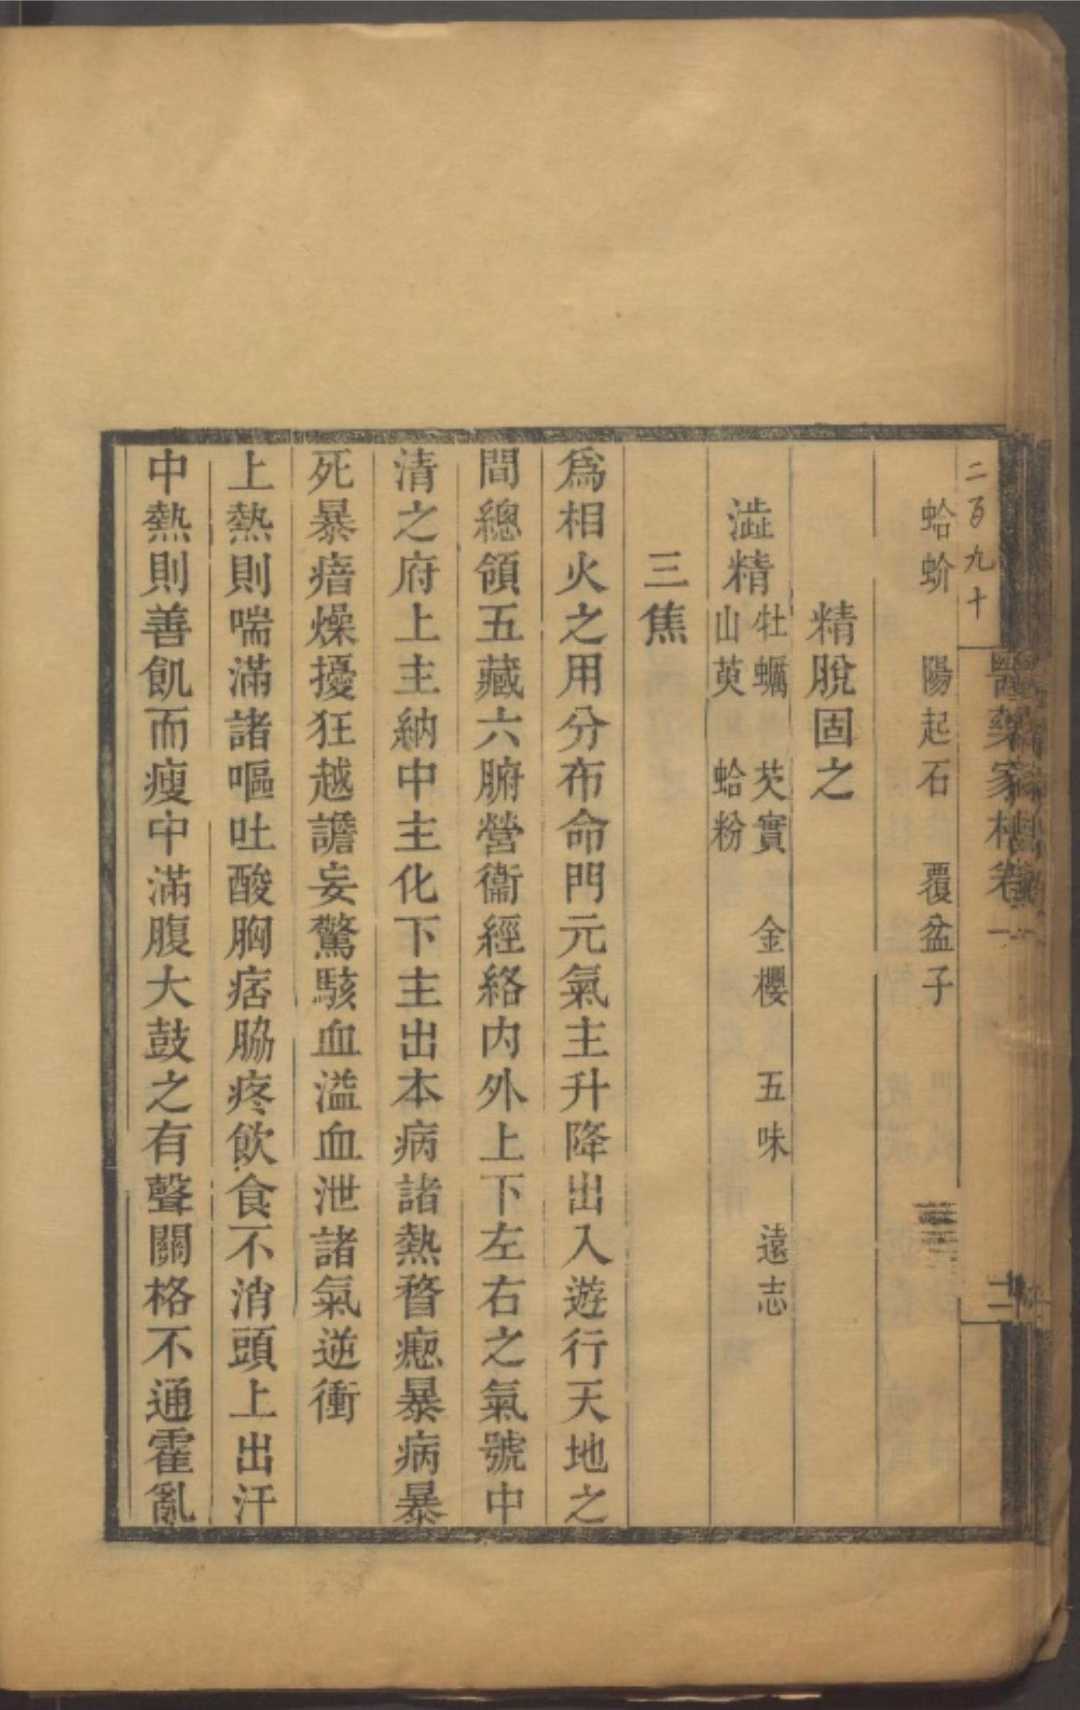 二百九十
醫藥家枏卷一
蛤蚧 陽起石 覆盆子
精脫固之
澁精 牡蠣 芡實 金櫻 五味 遠志
山萸 蛤粉
三焦
爲相火之用分布命門元氣主升降出入遊行天地之
間總領五藏六腑營衞經絡內外上下左右之氣號中
清之府上主納中主化下主出本病諸熱瞀瘛暴病暴
死暴瘖燥擾狂越譫妄驚駭血溢血泄諸氣逆衝
上熱則喘滿諸嘔吐酸胸痞脇疼飲食不消頭上出汗
中熱則善飢而瘦中滿腹大鼓之有聲關格不通霍亂